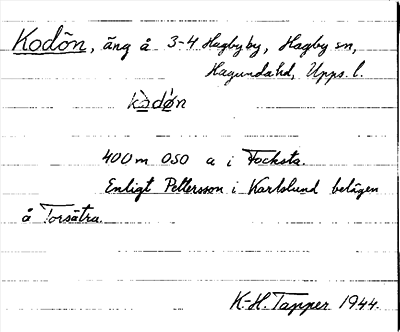 Kodön, äng å 3-4 Hagby by, Hagby sn,
Hagunda hd, Upps. l.
kòdǿn
400 m OSO a i Focksta.
Enligt Pettersson i Karlslund belägen
å Torsätra.
K-H. Tapper 1944.